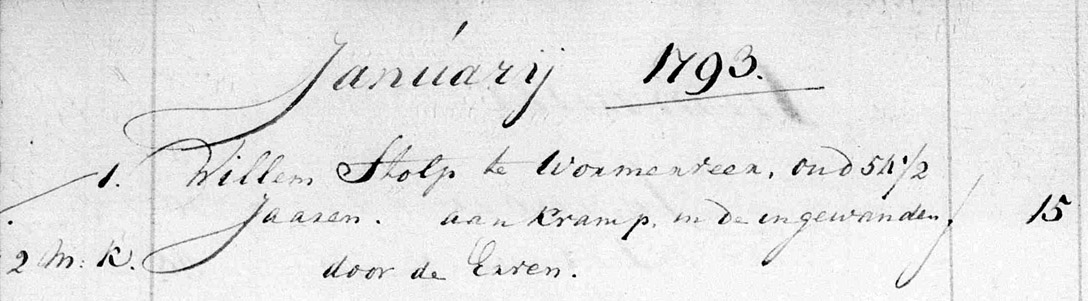 Januarij 1793.
1. Willem Stolp te Wormerveer, oud 54 1/2
Jaaren. aan kramp, in de ingewanden, 15
2 M: K. door de Erven.